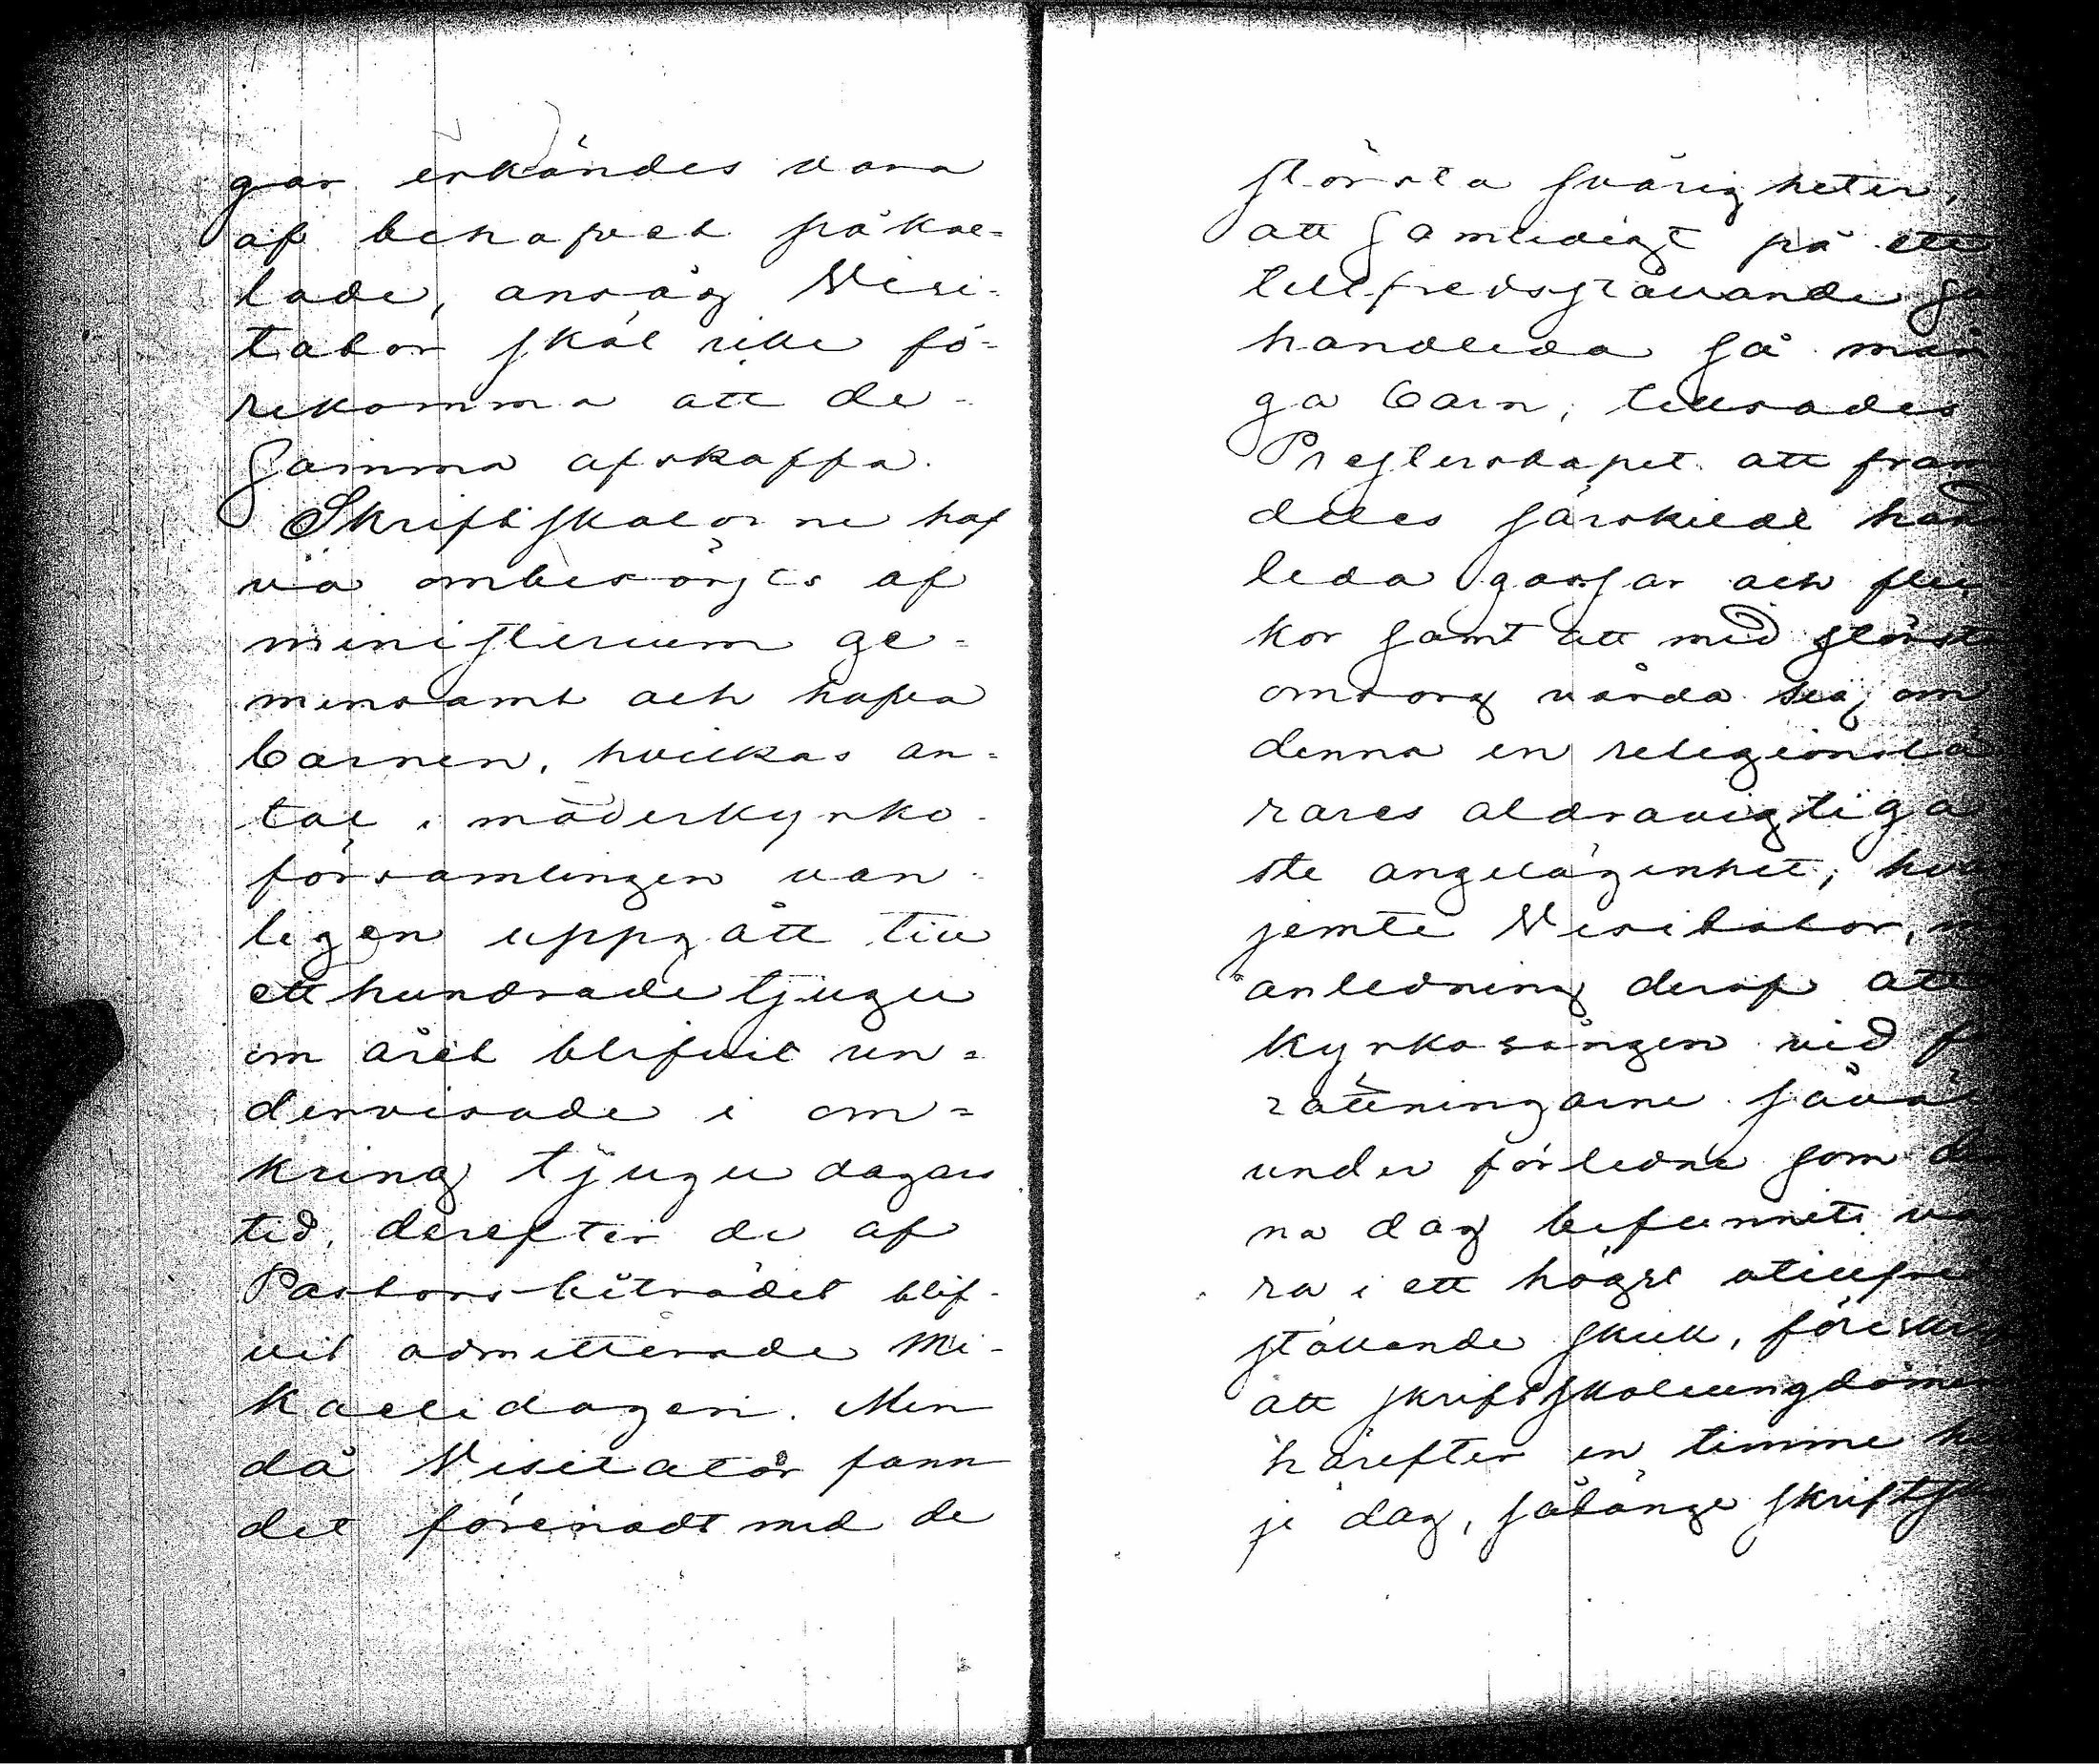 gar erkändes vara
af behofvet påkal-
lade, ansåg Visi-
tator skäl icke fö-
rekomma att de-
samma afskaffa.
Skriftskolorne haf
va ombesörjts af
ministerium ge-
mensamt och hafva
barnen, hvilkas an-
tal i moderkyrko-
församlingen van-
ligen uppgått till
ett hundrade tjugu
om året blifvit un-
dervisade i om-
kring tjugu dagars
tid, derefter de af
Pastorsbiträdet blif-
vit admitterade Mi-
kaelidagen. Men
då Visitator fann
det förenadt med de
största svårigheter,
att samtidigt på ett
tillfredsställande
handleda så mån
ga barn, tillsades
Presterskapet att fram
deles särskildt hand
leda gossar och flic
kor samt att med största
omsorg vårda sig om
denna en religionslä
rares aldravigtiga
ste angelägenhet;
jemte Visitator,
anledning deraf att
kyrkosången vid f
rättningarne såväl
under förledne som den
na dag befunnits va
ra i ett högst otillfred
ställande skick,
att skriftskoleungdomen
härefter en timme
je dag, sålänge